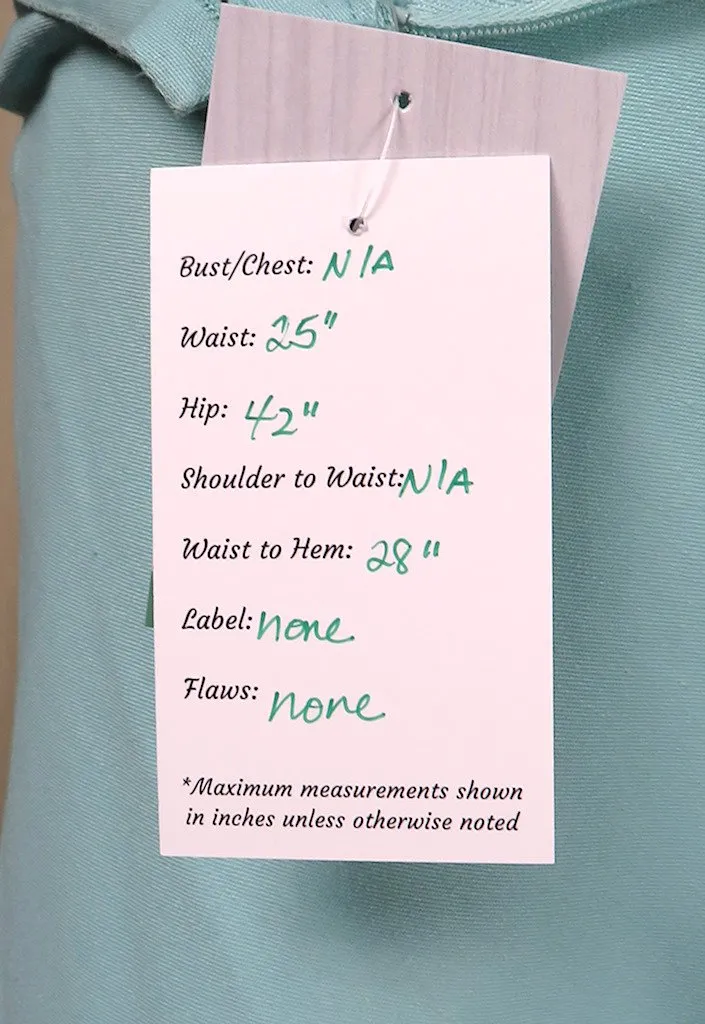 Bust/Chest: N/A
Waist: 25"
Hip: 42"
Shoulder to Waist: N/A
Waist to Hem: 28"
Label: none
Flaws: none
*Maximum measurements shown
in inches unless otherwise noted